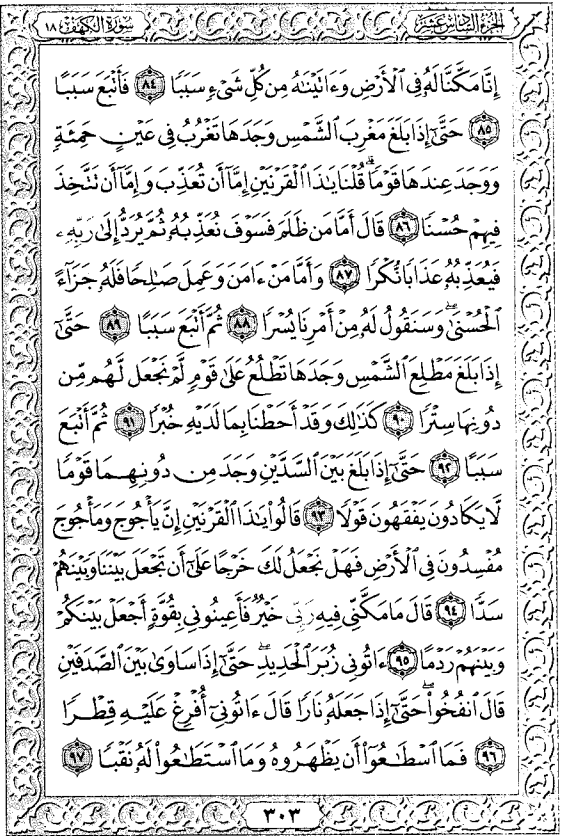 الجزء السادس عشر سورة الكهف ١٨
إِنَّا مَكَّنَّا لَهُۥ فِى ٱلْأَرْضِ وَءَاتَيْنَٰهُ مِن كُلِّ شَىْءٍ سَبَبًا ٨٤ فَأَتْبَعَ سَبَبًا
٨٥ حَتَّىٰٓ إِذَا بَلَغَ مَغْرِبَ ٱلشَّمْسِ وَجَدَهَا تَغْرُبُ فِى عَيْنٍ حَمِئَةٍ
وَوَجَدَ عِندَهَا قَوْمًا ۗ قُلْنَا يَٰذَا ٱلْقَرْنَيْنِ إِمَّآ أَن تُعَذِّبَ وَإِمَّآ أَن تَتَّخِذَ
فِيهِمْ حُسْنًا ٨٦ قَالَ أَمَّا مَن ظَلَمَ فَسَوْفَ نُعَذِّبُهُۥ ثُمَّ يُرَدُّ إِلَىٰ رَبِّهِۦ
فَيُعَذِّبُهُۥ عَذَابًا نُّكْرًا ٨٧ وَأَمَّا مَنْ ءَامَنَ وَعَمِلَ صَٰلِحًا فَلَهُۥ جَزَآءً
ٱلْحُسْنَىٰ ۖ وَسَنَقُولُ لَهُۥ مِنْ أَمْرِنَا يُسْرًا ٨٨ ثُمَّ أَتْبَعَ سَبَبًا ٨٩ حَتَّىٰٓ
إِذَا بَلَغَ مَطْلِعَ ٱلشَّمْسِ وَجَدَهَا تَطْلُعُ عَلَىٰ قَوْمٍ لَّمْ نَجْعَل لَّهُم مِّن
دُونِهَا سِتْرًا ٩٠ كَذَٰلِكَ وَقَدْ أَحَطْنَا بِمَا لَدَيْهِ خُبْرًا ٩١ ثُمَّ أَتْبَعَ
سَبَبًا ٩٢ حَتَّىٰٓ إِذَا بَلَغَ بَيْنَ ٱلسَّدَّيْنِ وَجَدَ مِن دُونِهِمَا قَوْمًا
لَّا يَكَادُونَ يَفْقَهُونَ قَوْلًا ٩٣ قَالُوا۟ يَٰذَا ٱلْقَرْنَيْنِ إِنَّ يَأْجُوجَ وَمَأْجُوجَ
مُفْسِدُونَ فِى ٱلْأَرْضِ فَهَلْ نَجْعَلُ لَكَ خَرْجًا عَلَىٰٓ أَن تَجْعَلَ بَيْنَنَا وَبَيْنَهُمْ
سَدًّا ٩٤ قَالَ مَا مَكَّنِّى فِيهِ رَبِّى خَيْرٌ فَأَعِينُونِى بِقُوَّةٍ أَجْعَلْ بَيْنَكُمْ
وَبَيْنَهُمْ رَدْمًا ٩٥ ءَاتُونِى زُبَرَ ٱلْحَدِيدِ ۖ حَتَّىٰٓ إِذَا سَاوَىٰ بَيْنَ ٱلصَّدَفَيْنِ
قَالَ ٱنفُخُوا۟ ۖ حَتَّىٰٓ إِذَا جَعَلَهُۥ نَارًا قَالَ ءَاتُونِىٓ أُفْرِغْ عَلَيْهِ قِطْرًا
٩٦ فَمَا ٱسْطَٰعُوٓا۟ أَن يَظْهَرُوهُ وَمَا ٱسْتَطَٰعُوا۟ لَهُۥ نَقْبًا ٩٧
٣٠٣